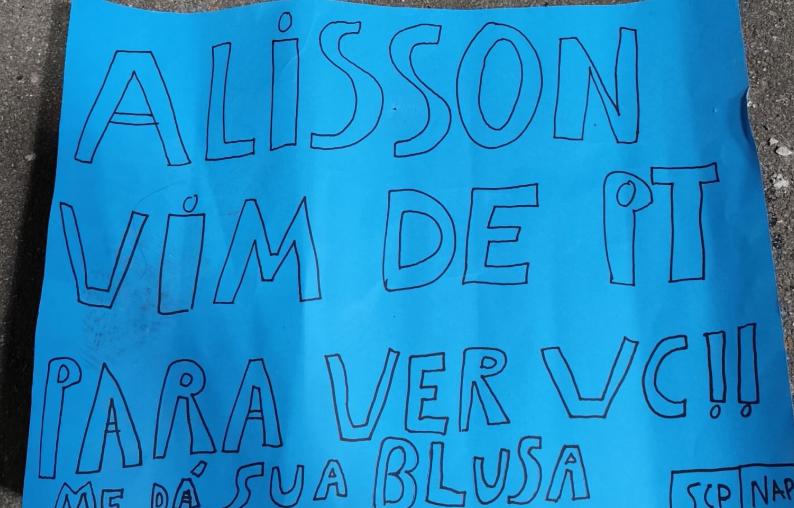 ALiSSON
ViM DE PT
PARA VER VC!!
ME DÁ SUA BLUSA
SCP NAP